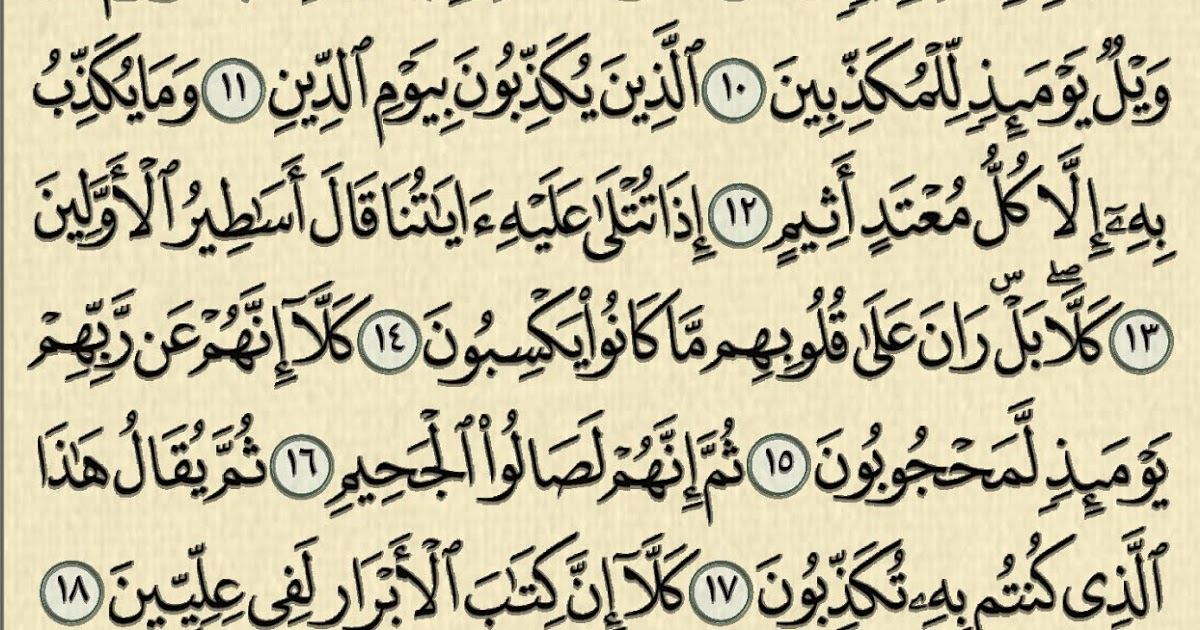 وَيْلٌ يَوْمَئِذٍ لِّلْمُكَذِّبِينَ ١٠ ٱلَّذِينَ يُكَذِّبُونَ بِيَوْمِ ٱلدِّينِ ١١ وَمَا يُكَذِّبُ
بِهِۦٓ إِلَّا كُلُّ مُعْتَدٍ أَثِيمٍ ١٢ إِذَا تُتْلَىٰ عَلَيْهِ ءَايَـٰتُنَا قَالَ أَسَـٰطِيرُ ٱلْأَوَّلِينَ
١٣ كَلَّا ۖ بَلْ ۜ رَانَ عَلَىٰ قُلُوبِهِم مَّا كَانُوا۟ يَكْسِبُونَ ١٤ كَلَّآ إِنَّهُمْ عَن رَّبِّهِمْ
يَوْمَئِذٍ لَّمَحْجُوبُونَ ١٥ ثُمَّ إِنَّهُمْ لَصَالُوا۟ ٱلْجَحِيمِ ١٦ ثُمَّ يُقَالُ هَـٰذَا
ٱلَّذِى كُنتُم بِهِۦ تُكَذِّبُونَ ١٧ كَلَّآ إِنَّ كِتَـٰبَ ٱلْأَبْرَارِ لَفِى عِلِّيِّينَ ١٨